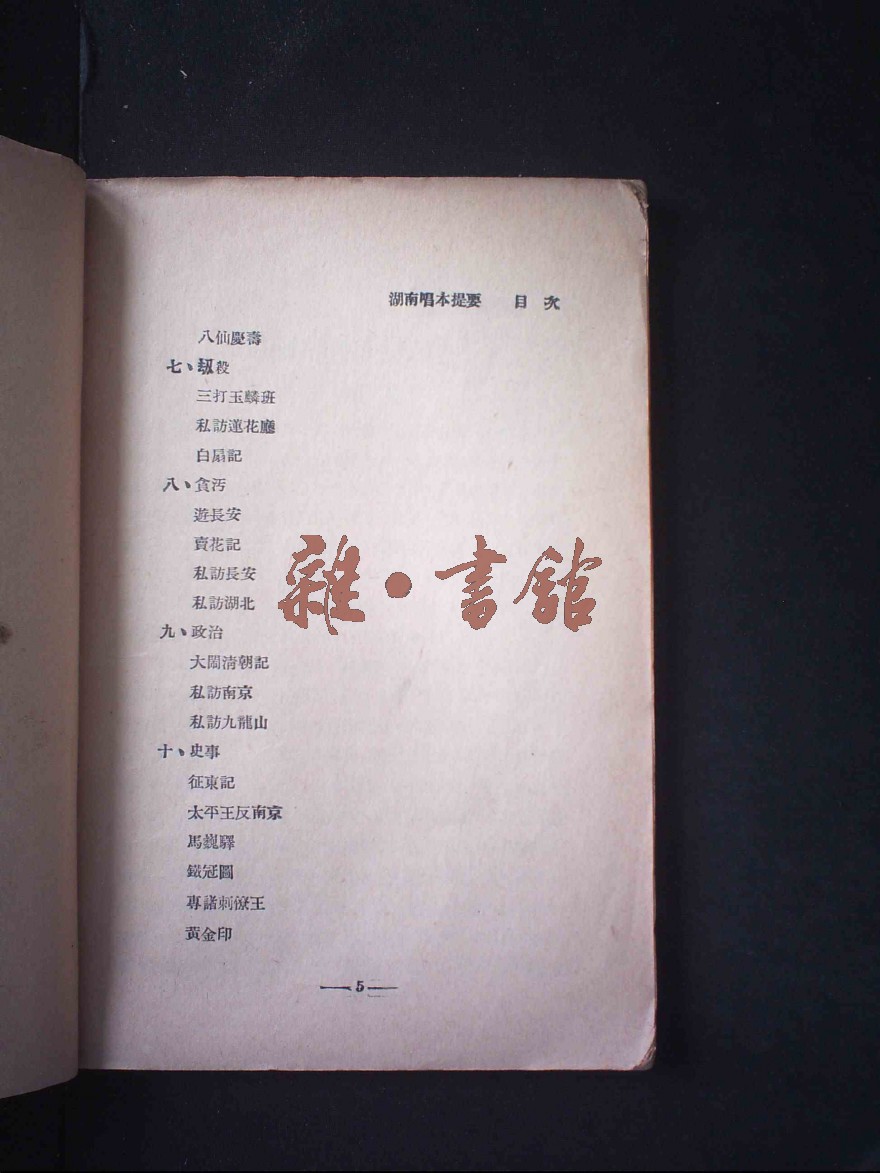 湖南唱本提要 目次
八仙慶壽
七、刼殺
三打玉麟班
私訪蓮花廳
白扇記
八、貪污
遊長安
賣花記
私訪長安
私訪湖北
九、政治
大鬧清朝記
私訪南京
私訪九龍山
十、史事
征東記
太平王反南京
馬巍驛
鐵冠圖
專諸刺僚王
黃金印
5
雜·書館